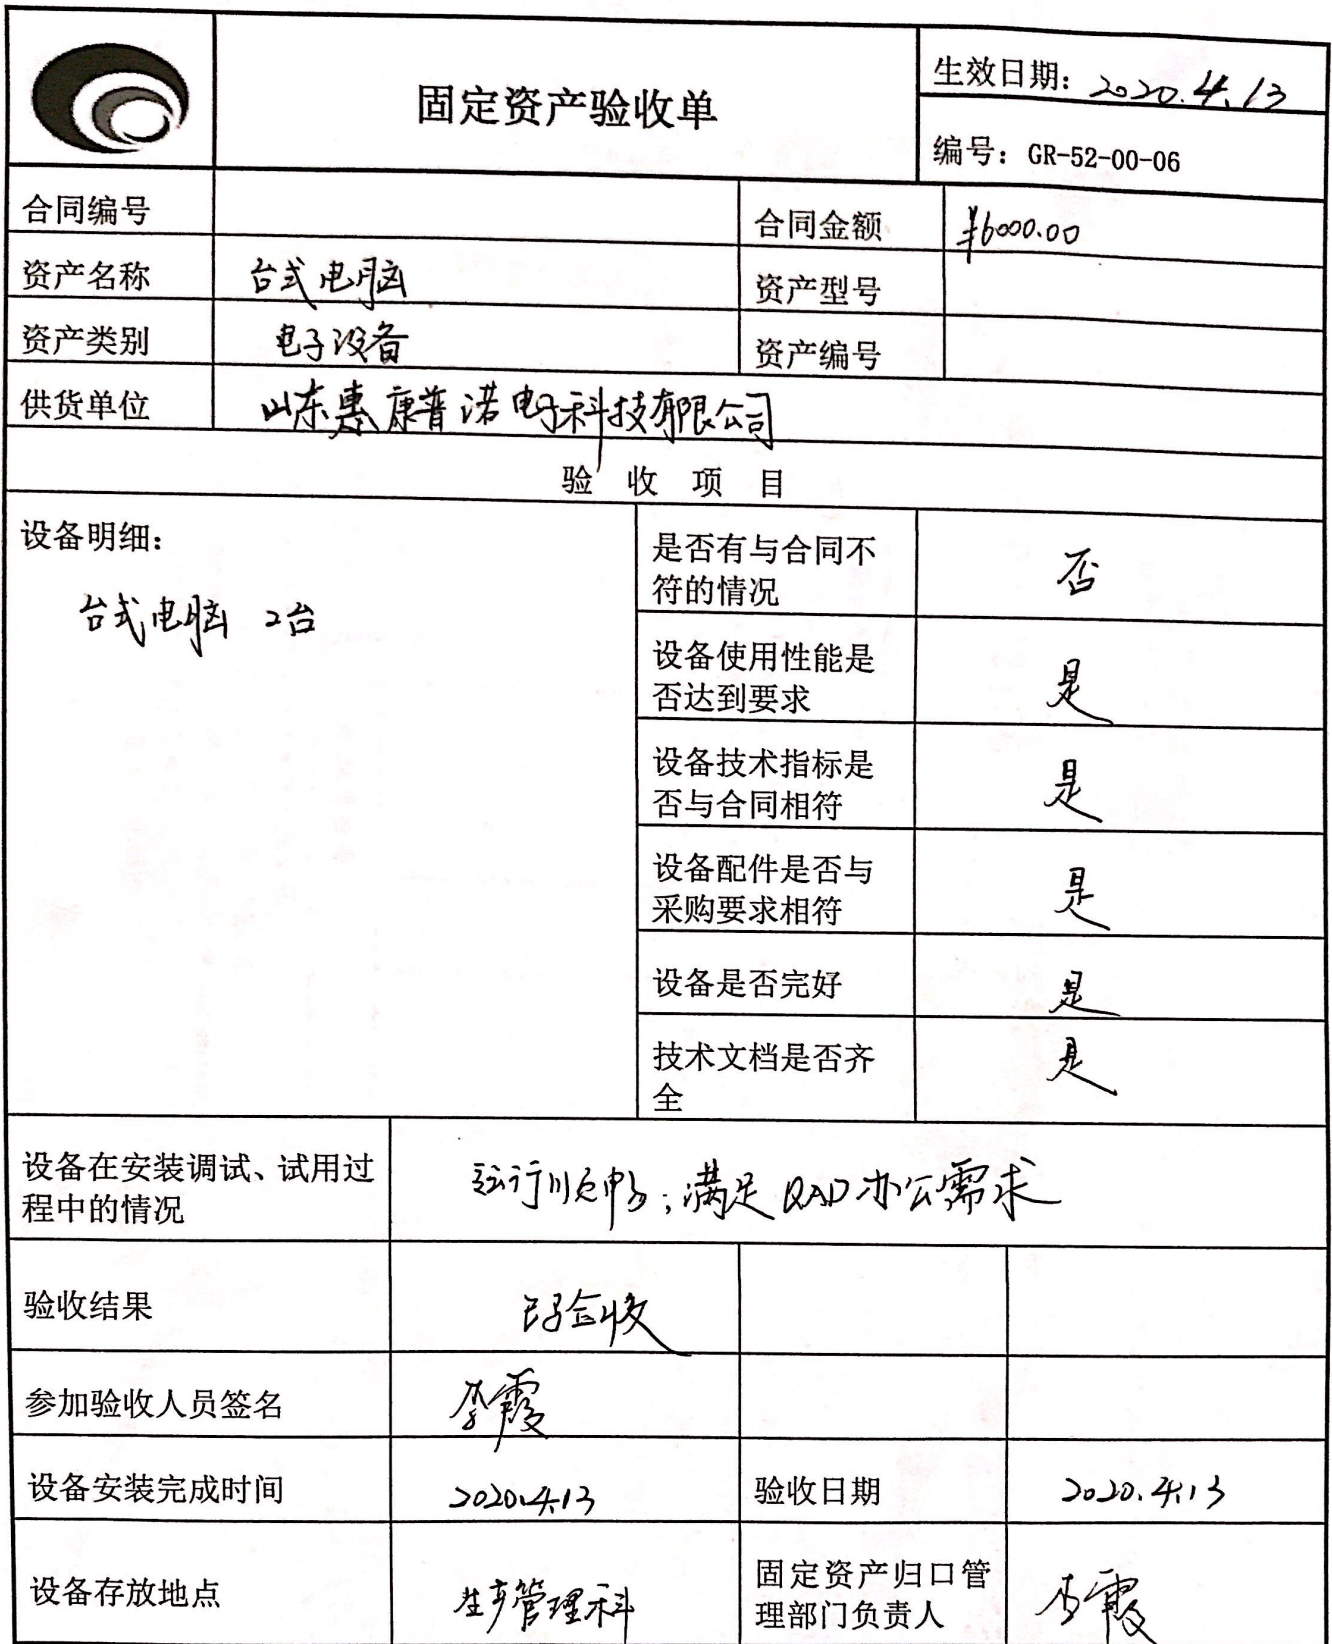 固定资产验收单
生效日期：2020.4.13
编号：GR-52-00-06
合同编号
合同金额 ¥6000.00
资产名称 台式电脑
资产型号
资产类别 电子设备
资产编号
供货单位 山东惠康普诺电子科技有限公司
验 收 项 目
设备明细：
台式电脑 2台
是否有与合同不
符的情况
否
设备使用性能是
否达到要求
是
设备技术指标是
否与合同相符
是
设备配件是否与
采购要求相符
是
设备是否完好
是
技术文档是否齐
全
是
设备在安装调试、试用过
程中的情况
运行顺畅；满足 办公需求
验收结果
已验收
参加验收人员签名
李霞
设备安装完成时间
2020.4.13
验收日期
2020.4.13
设备存放地点
生产管理科
固定资产归口管
理部门负责人
李霞